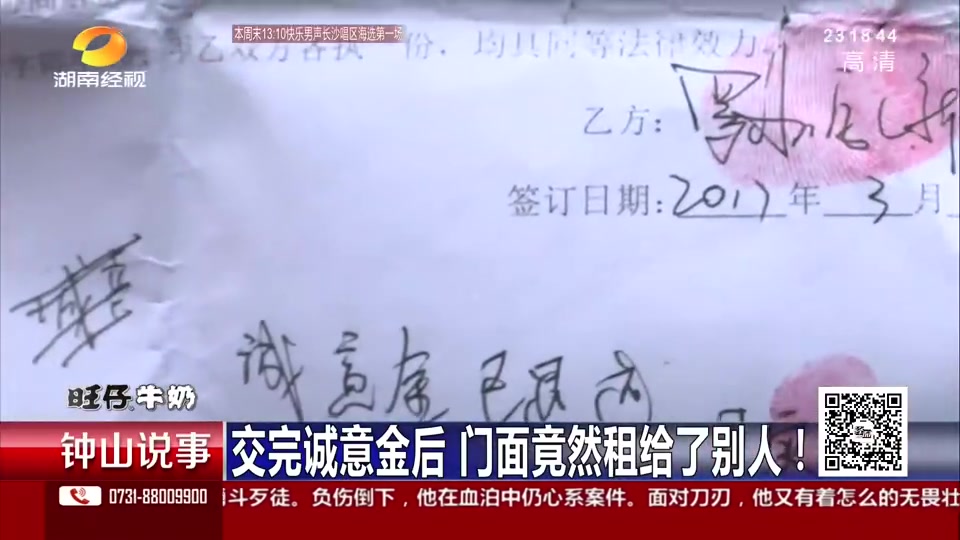 本周末13:10快乐男声长沙唱区海选第一场
231844
高清
湖南经视
乙双方各执一份，均具同等法律效力
乙方：
签订日期：2017年3月
诚意金已
旺仔牛奶
钟山说事
交完诚意金后 门面竟然租给了别人！
0731-88009900
斗歹徒。负伤倒下，他在血泊中仍心系案件。面对刀刃，他又有着怎么的无畏壮